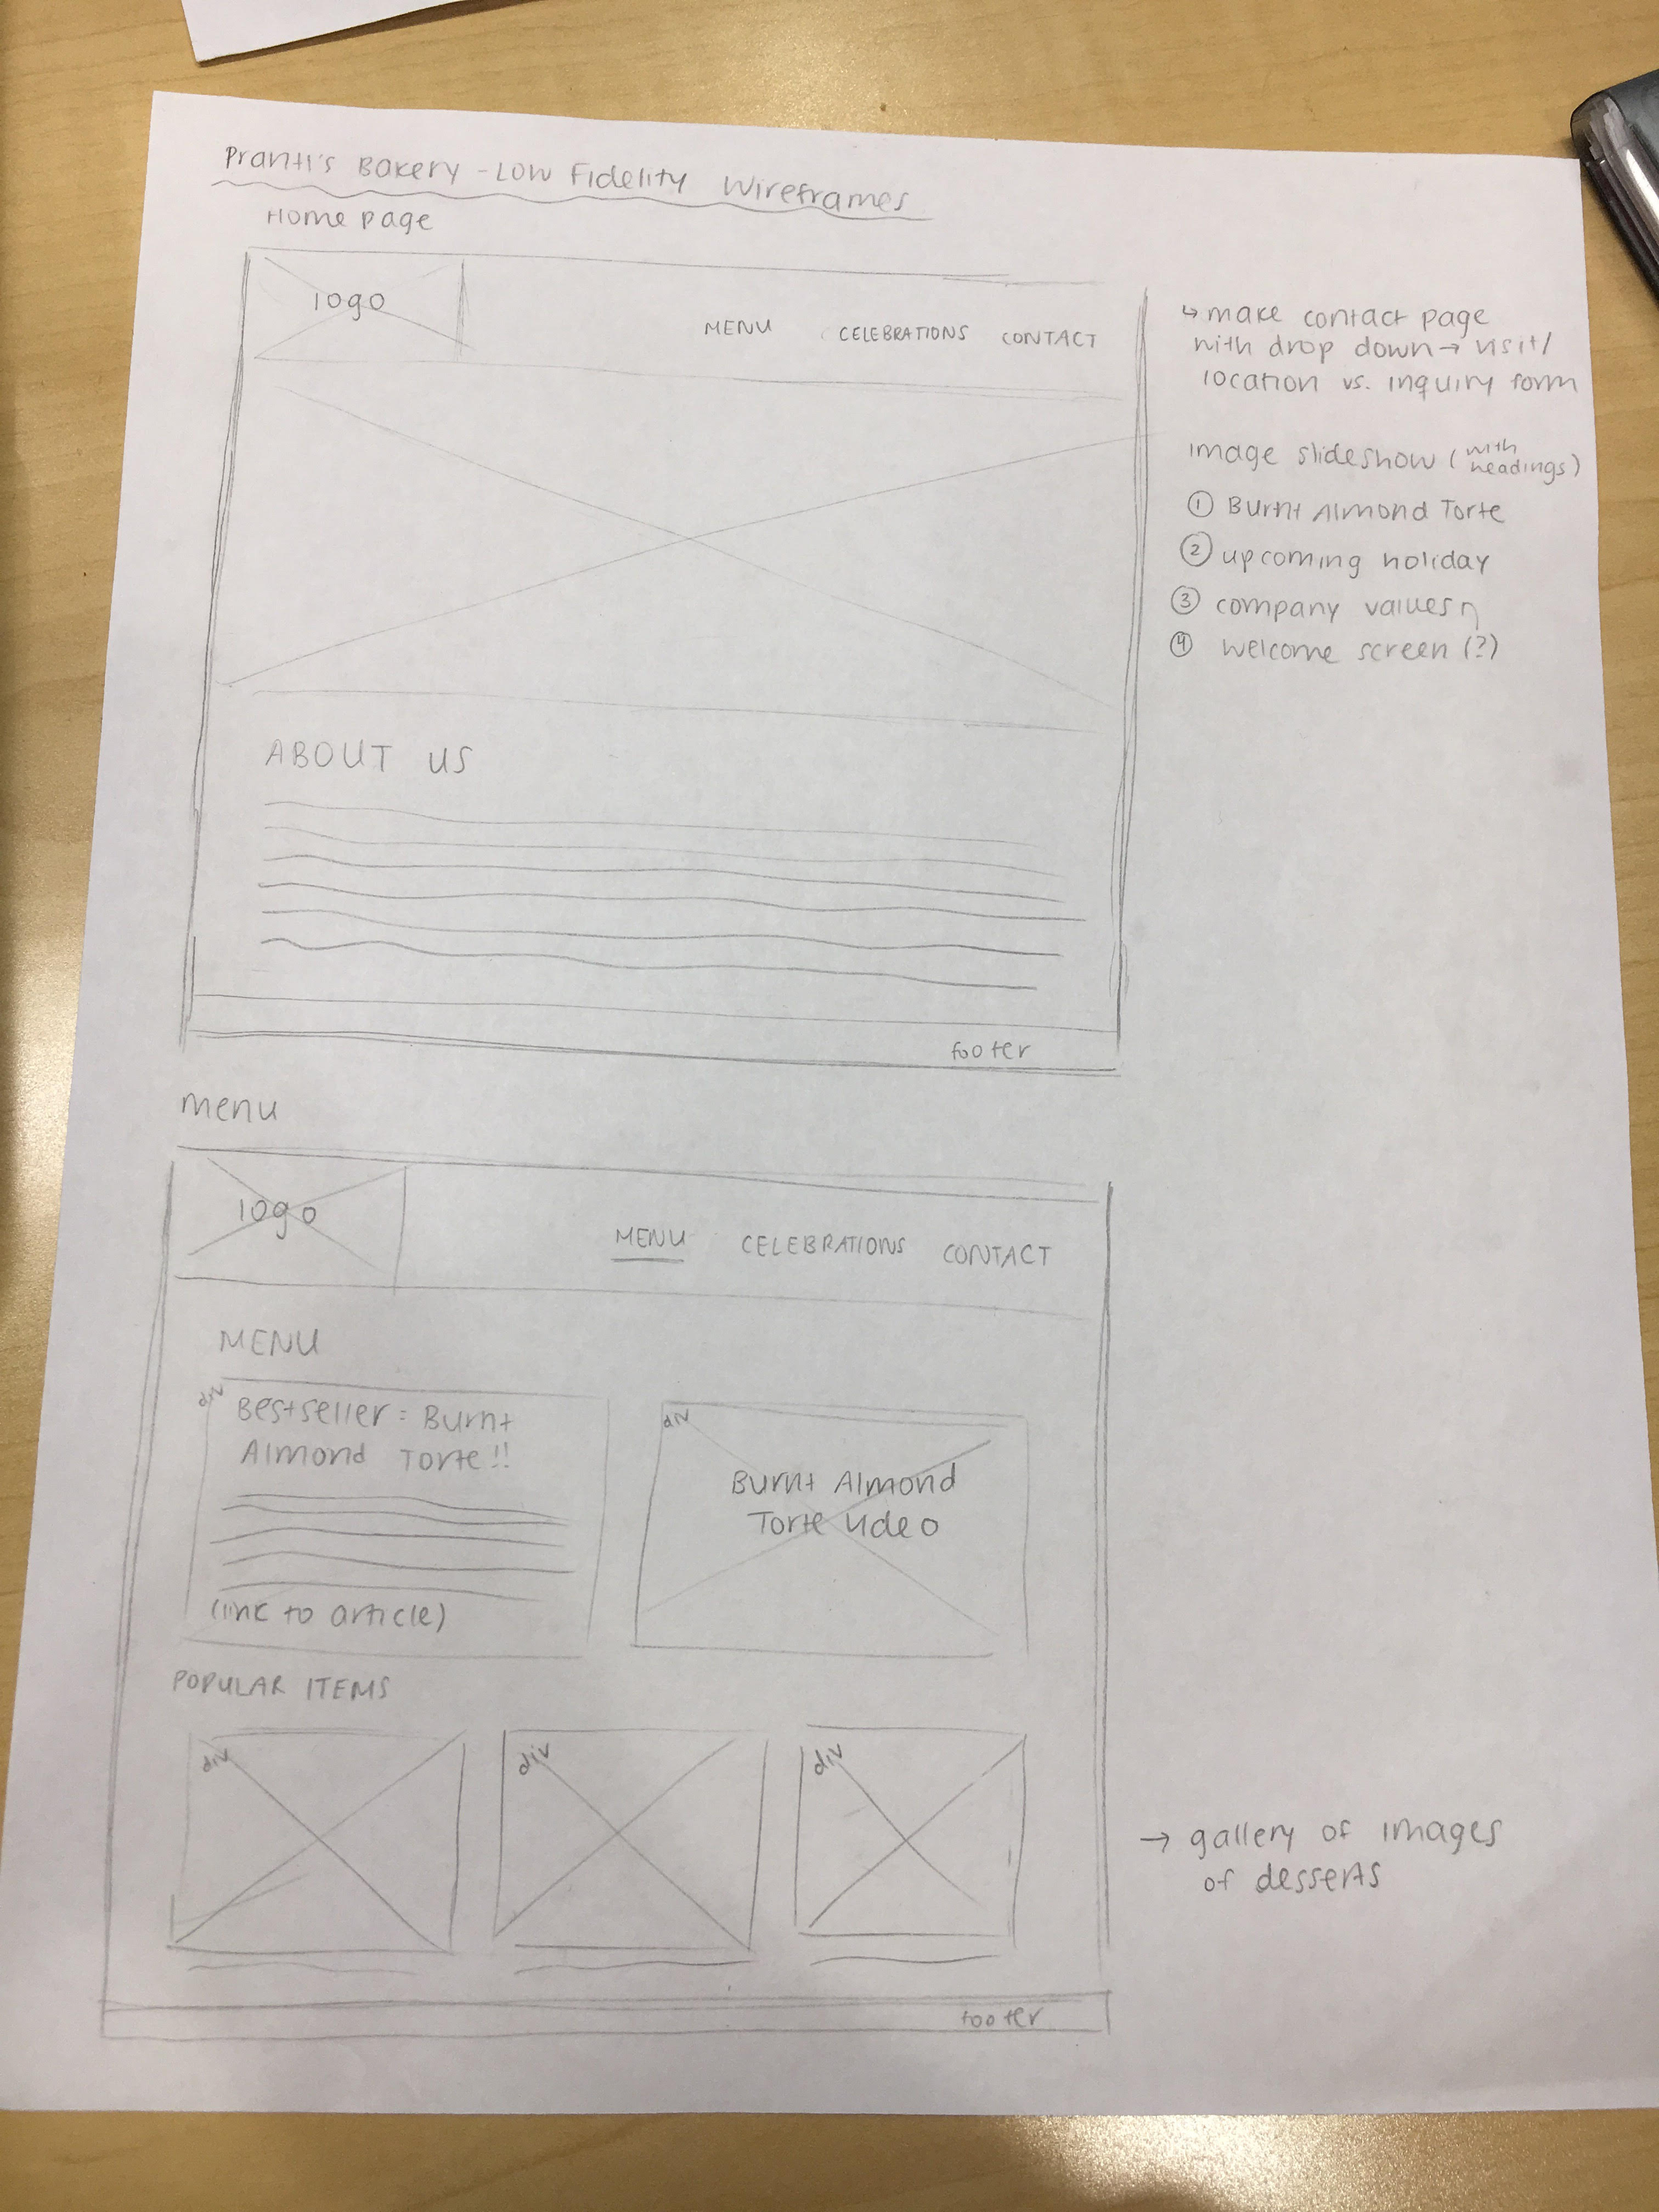 Prantl's Bakery - Low Fidelity Wireframes
Home page
logo
MENU CELEBRATIONS CONTACT
↳ make contact page
with drop down → visit/
location vs. inquiry form
image slideshow (with headings)
① Burnt Almond Torte
② upcoming holiday
③ company values
④ welcome screen (?)
ABOUT US
footer
menu
logo
MENU CELEBRATIONS CONTACT
MENU
div
Bestseller: Burnt
Almond Torte!!
(link to article)
div
Burnt Almond
Torte video
POPULAR ITEMS
div div div
→ gallery of images
of desserts
footer